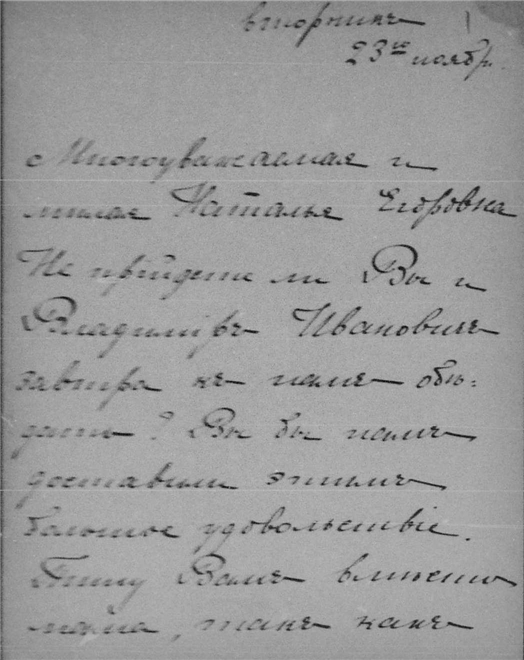 вторникъ
23го ноябр.
Многоуважаемая и
милая Наталья Егоровна
Не прійдете ли Вы и
Владиміръ Ивановичъ
завтра къ намъ обѣ-
дать? Вы бы намъ
доставили этимъ
большое удовольствіе.
Пишу Вамъ вмѣсто
мама, такъ какъ